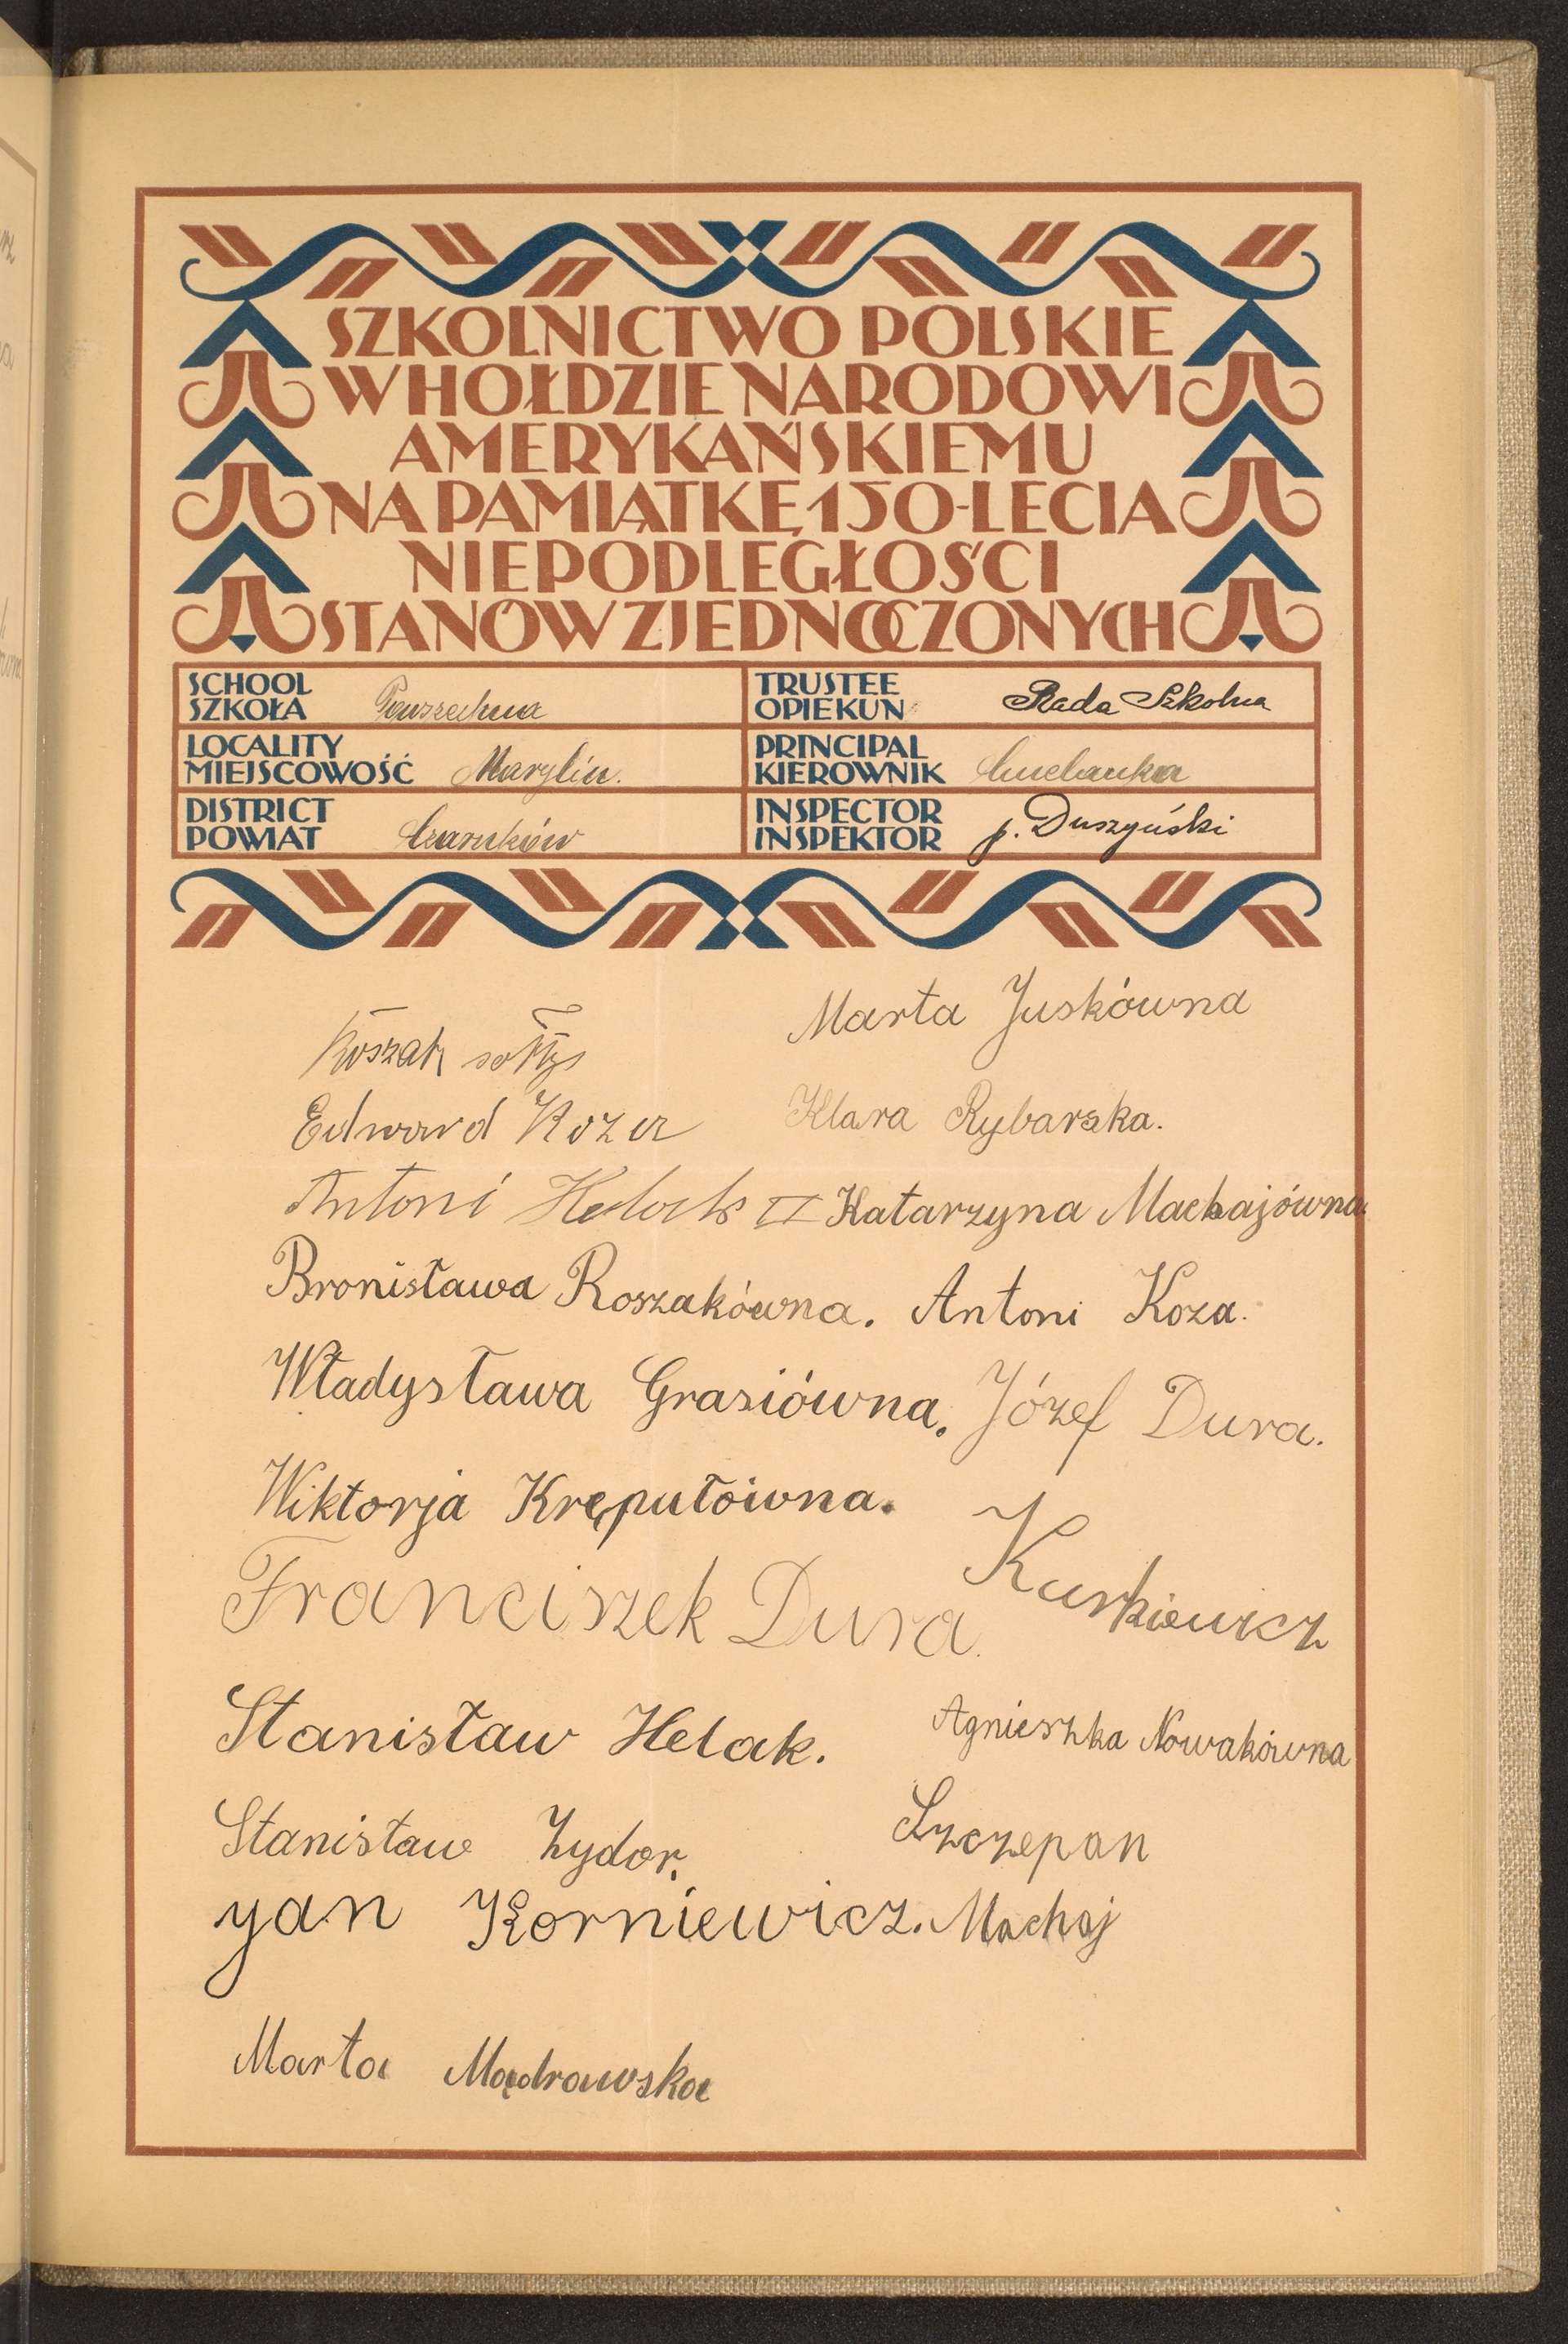 SZKOLNICTWO POLSKIE
W HOŁDZIE NARODOWI
AMERYKAŃSKIEMU
NA PAMIĄTKĘ 150-LECIA
NIEPODLEGŁOŚCI
STANÓW ZJEDNOCZONYCH
SCHOOL
SZKOŁA Powszechna
TRUSTEE
OPIEKUN Rada Szkolna
LOCALITY
MIEJSCOWOŚĆ Marylin.
PRINCIPAL
KIEROWNIK
DISTRICT
POWIAT Czarnków
INSPECTOR
INSPEKTOR p. Duszyński
Marta Juskówna
Roszak sołtys
Edward Koza
Klara Rybarska.
Antoni Helak II
Katarzyna Machajówna
Bronisława Roszakówna.
Antoni Koza.
Władysława Grasiówna.
Józef Dura.
Wiktorja Kręputówna.
Kurkiewicz
Franciszek Dura.
Stanisław Helak.
Agnieszka Nowakówna
Stanisław Zydor.
Szczepan
Machaj
yan Korniewicz.
Marta Mądrawska